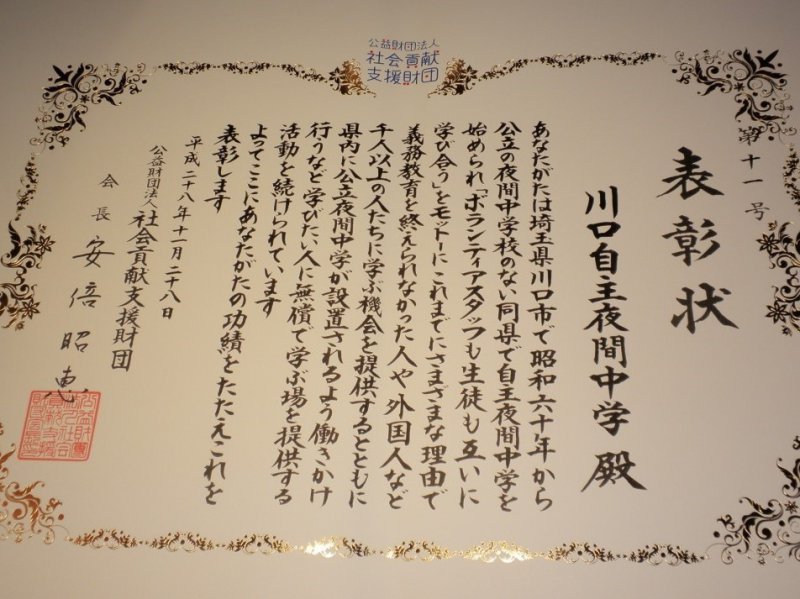 公益財団法人
社会貢献
支援財団
第十一号
表彰状
川口自主夜間中学 殿
あなたがたは埼玉県川口市で昭和六十年から
公立の夜間中学校のない同県で自主夜間中学を
始められ「ボランティアスタッフも生徒も互いに
学び合う」をモットーにこれまでにさまざまな理由で
義務教育を終えられなかった人や外国人など
千人以上の人たちに学ぶ機会を提供するとともに
県内に公立夜間中学が設置されるよう働きかけ
行うなど学びたい人に無償で学ぶ場を提供する
活動を続けられています
よってここにあなたがたの功績をたたえこれを
表彰します
平成二十八年十一月二十八日
公益財団法人 社会貢献支援財団
会長 安倍昭恵